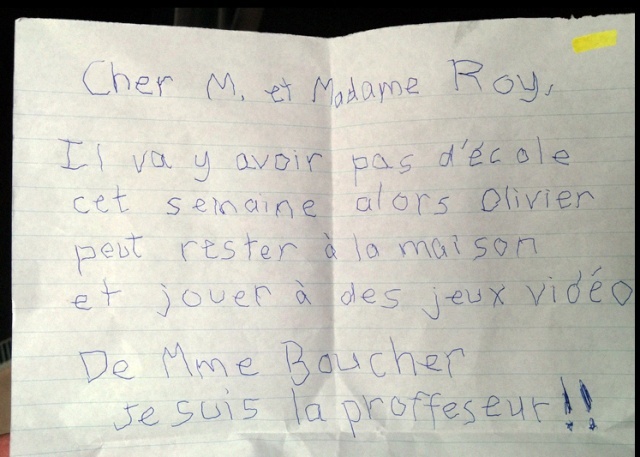 Cher M. et Madame Roy,
Il va y avoir pas d'école
cet semaine alors Olivier
peut rester à la maison
et jouer à des jeux vidéo
De Mme Boucher
Je suis la proffeseur!!